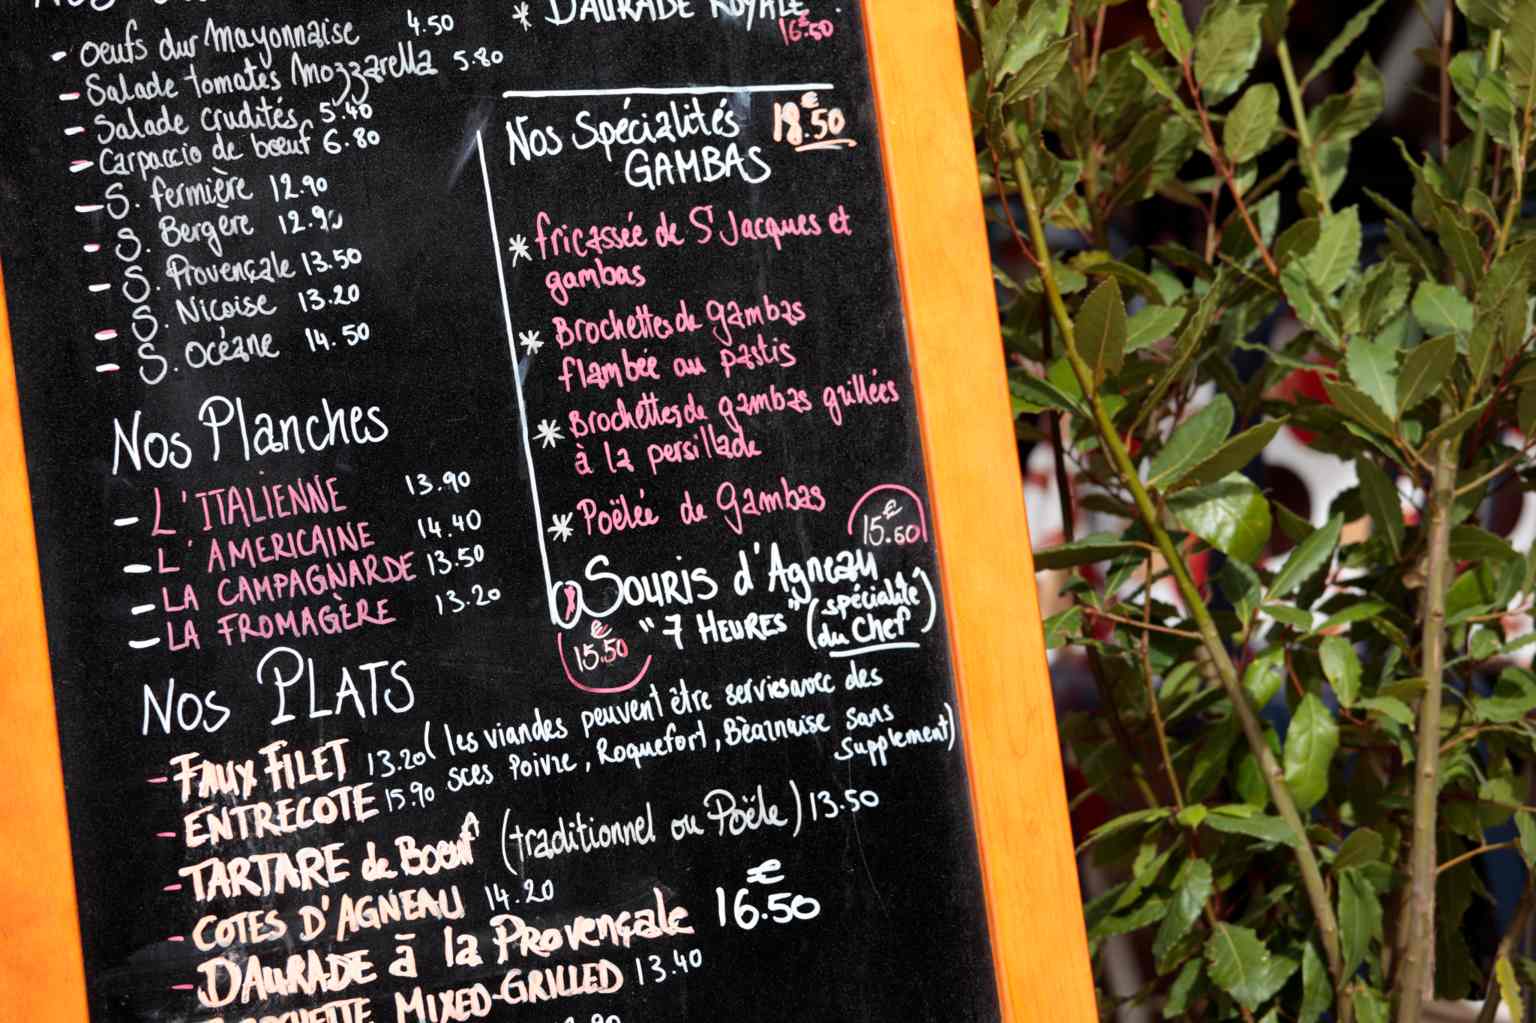 - Oeufs dur Mayonnaise 4.50
- Salade tomates Mozzarella 5.80
- Salade crudités 5.40
- Carpaccio de bœuf 6.80
- S. fermière 12.90
- S. Bergère 12.90
- S. Provençale 13.50
- S. Nicoise 13.20
- S. Océane 14.50
Nos Planches
- L'ITALIENNE 13.90
- L'AMERICAINE 14.40
- LA CAMPAGNARDE 13.50
- LA FROMAGÈRE 13.20
* DAURADE ROYALE
16€50
Nos Spécialités 18.€50
GAMBAS
* fricassée de S Jacques et
gambas
* Brochettes de gambas
flambée au pastis
* Brochettes de gambas grillées
à la persillade
* Poëlée de Gambas
15.€60
Souris d'Agneau
"7 HEURES" (spécialité
du Chef)
15.€50
Nos PLATS
- FAUX FILET 13.20 (les viandes peuvent être servies avec des
- ENTRECOTE 15.90 sces Poivre, Roquefort, Béarnaise sans
supplement)
- TARTARE de Boeuf (traditionnel ou Poële) 13.50
- COTES D'AGNEAU 14.20
- DAURADE à la Provençale 16.€50
MIXED-GRILLED 13.40